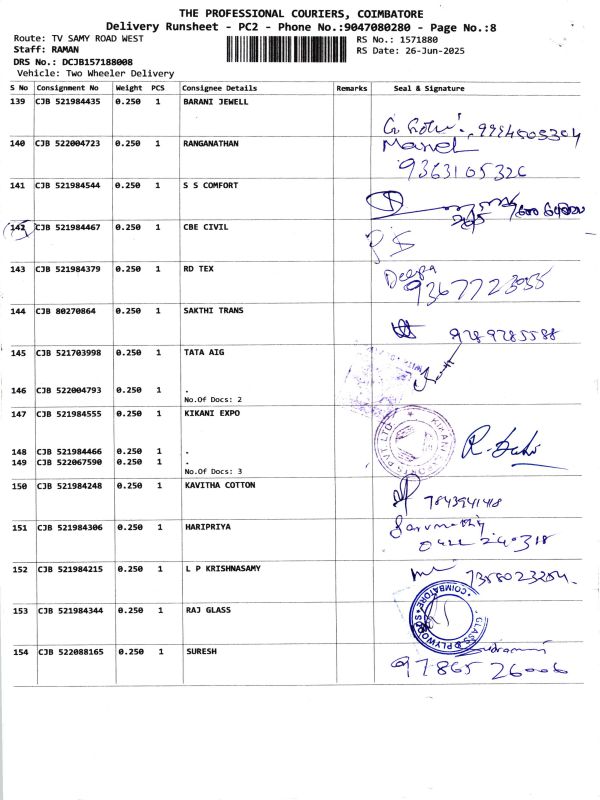 THE PROFESSIONAL COURIERS, COIMBATORE
Delivery Runsheet - PC2 - Phone No.:9047080280 - Page No.:8
Route: TV SAMY ROAD WEST
RS No.: 1571880
Staff: RAMAN
RS Date: 26-Jun-2025
DRS No.: DCJB157188008
Vehicle: Two Wheeler Delivery
S No Consignment No Weight PCS Consignee Details Remarks Seal & Signature
139 CJB 521984435 0.250 1 BARANI JEWELL
140 CJB 522004723 0.250 1 RANGANATHAN
9363105326
141 CJB 521984544 0.250 1 S S COMFORT
142 CJB 521984467 0.250 1 CBE CIVIL
143 CJB 521984379 0.250 1 RD TEX
Deepa
9367723055
144 CJB 80270864 0.250 1 SAKTHI TRANS
9789785588
145 CJB 521703998 0.250 1 TATA AIG
146 CJB 522004793 0.250 1 .
No.Of Docs: 2
147 CJB 521984555 0.250 1 KIKANI EXPO
148 CJB 521984466 0.250 1 .
149 CJB 522067590 0.250 1 .
No.Of Docs: 3
150 CJB 521984248 0.250 1 KAVITHA COTTON
7843941418
151 CJB 521984306 0.250 1 HARIPRIYA
152 CJB 521984215 0.250 1 L P KRISHNASAMY
7358023254
153 CJB 521984344 0.250 1 RAJ GLASS
COIMBATORE
GLASS & PLYWOOD
154 CJB 522088165 0.250 1 SURESH
97865 26006